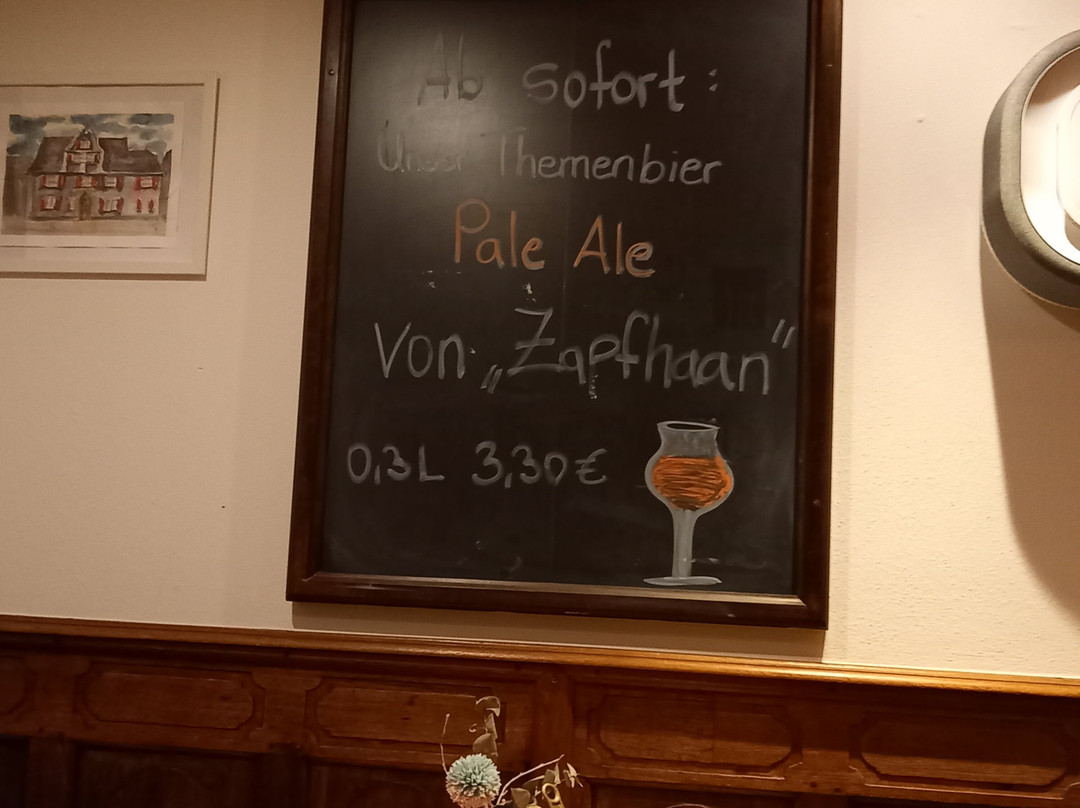 Ab sofort:
Unser Themenbier
Pale Ale
von „Zapfhaan"
0,3L 3,30€